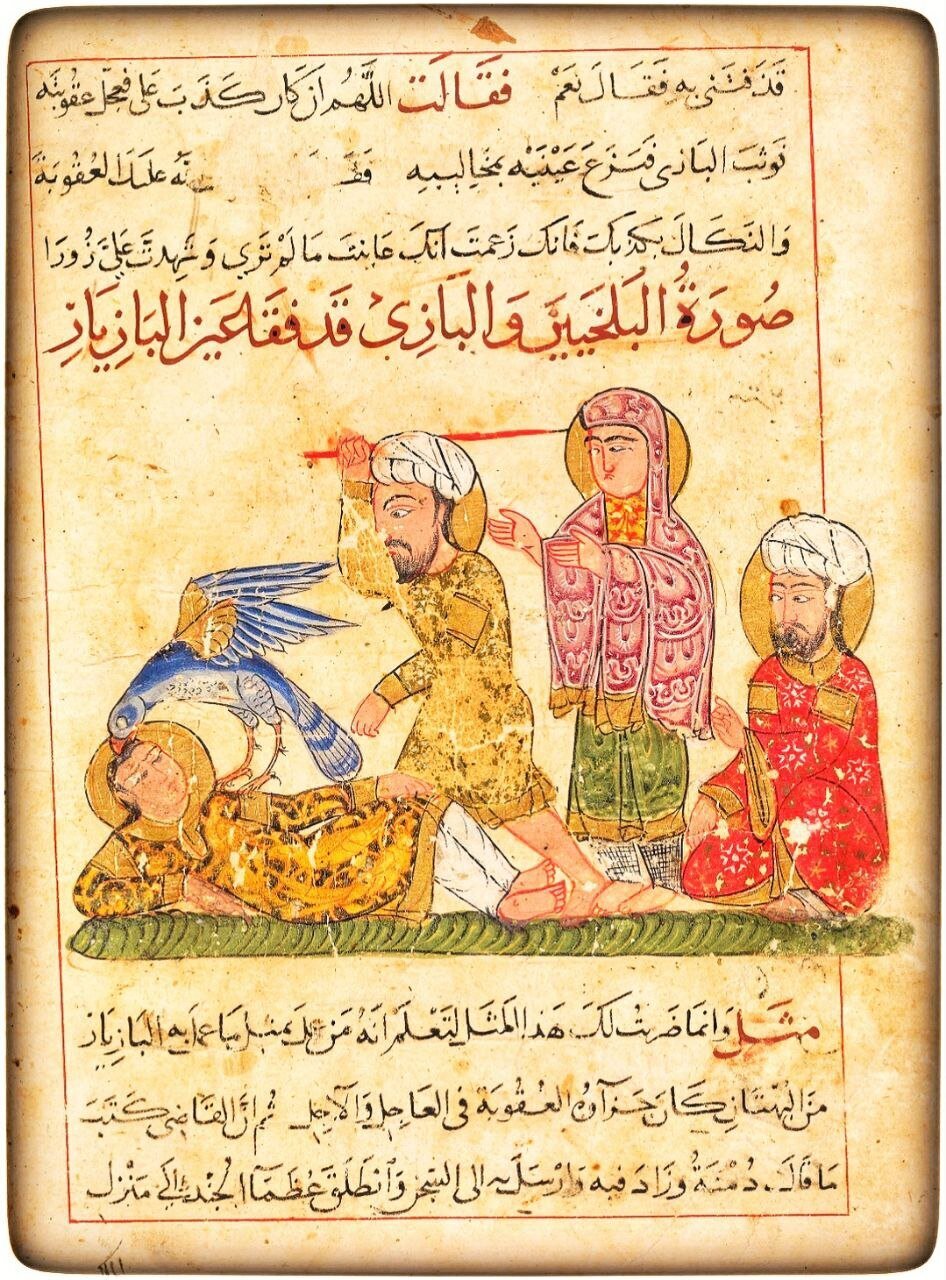 قذفتني به فقال نعم فقالت اللّهُم ان كان كذب علي فعجل عقوبته
فوثب البازي فنزع عينيه بمخاليبه عليك العقوبة
والنكال بكذبك فانك زعمت انك عاينت ما لم تري وشهدت علي زورا
صُورَةُ البلخيين والبازي قد فقا عين البازيار
مثل وانما ضربت لك هذا المثل لتعلم انه من عمل بمثل ما عمل به البازيار
من البهتان كان جزآوه العقوبة في العاجل والآجل ثم ان القاضي كتب
ما قال دمنة وزاد فيه وارسل به الى السجن وانطلق عظمآ الجند الى منزل